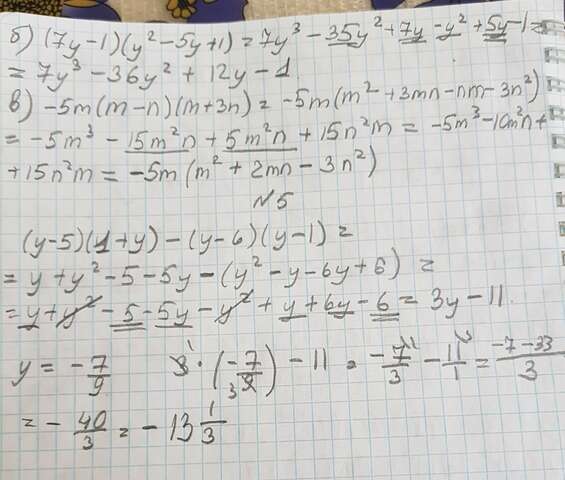 б) (7y-1)(y²-5y+1) = 7y³ - 35y² + 7y - y² + 5y - 1 =
= 7y³ - 36y² + 12y - 1
в) -5m(m-n)(m+3n) = -5m(m² + 3mn - nm - 3n²)
= -5m³ - 15m²n + 5m²n + 15n²m = -5m³ - 10m²n +
+ 15n²m = -5m(m² + 2mn - 3n²)
№5
(y-5)(1+y) - (y-6)(y-1) =
= y + y² - 5 - 5y - (y² - y - 6y + 6) =
= y + y² - 5 - 5y - y² + y + 6y - 6 = 3y - 11.
y = -7/9 3 · (-7/9) - 11 = -7/3 - 11/1 = (-7-33)/3
= -40/3 = -13 1/3